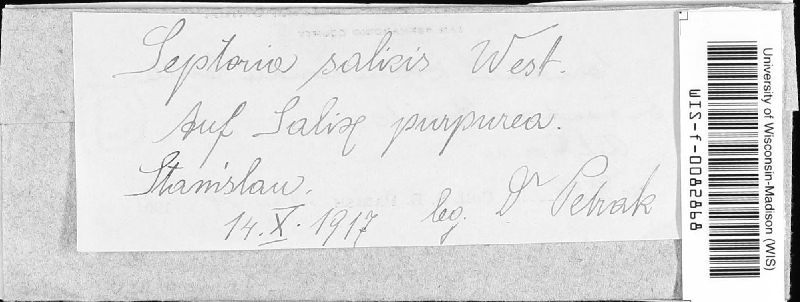 Septoria salicis West.
Auf Salix purpurea.
Stanislau.
14. X. 1917 leg. Dr Petrak
University of Wisconsin-Madison (WIS)
WIS-f-0082868